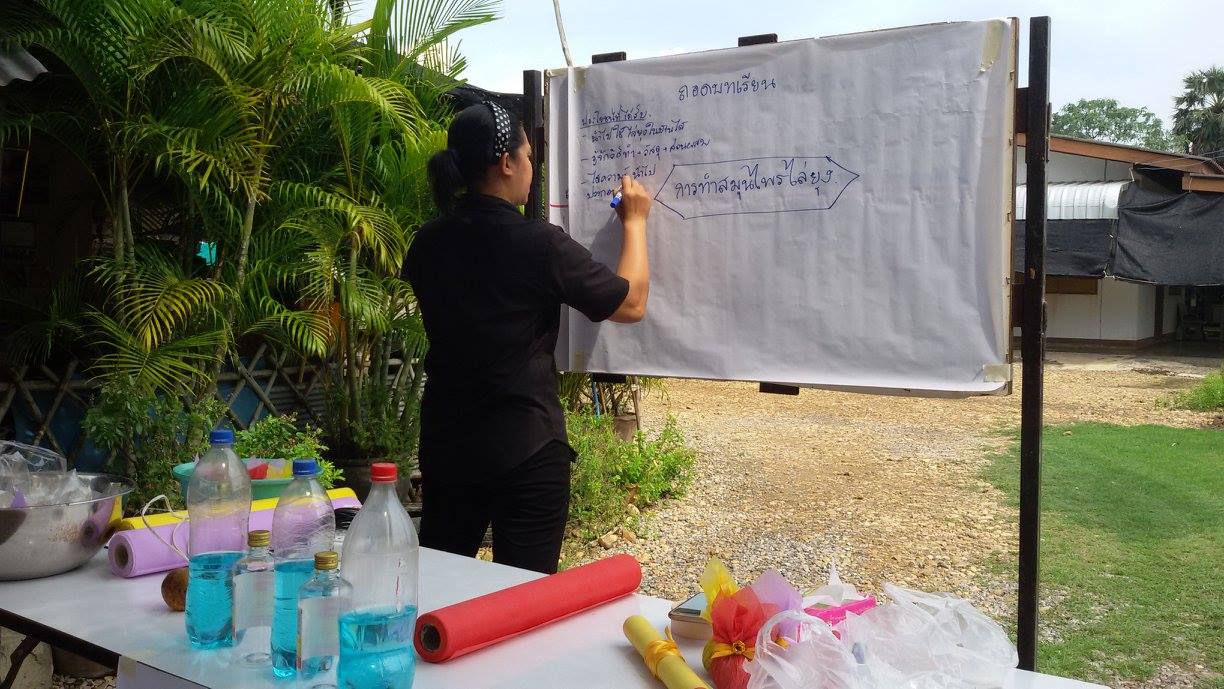 ถอดบทเรียน
ประโยชน์ที่ได้รับ
- นำไปใช้ไล่ยุงในบ้านได้
- รู้จักวิธีทำ + วัสดุ + ส่วนผสม
- ใช้ความรู้ นำไป
การทำสมุนไพรไล่ยุง